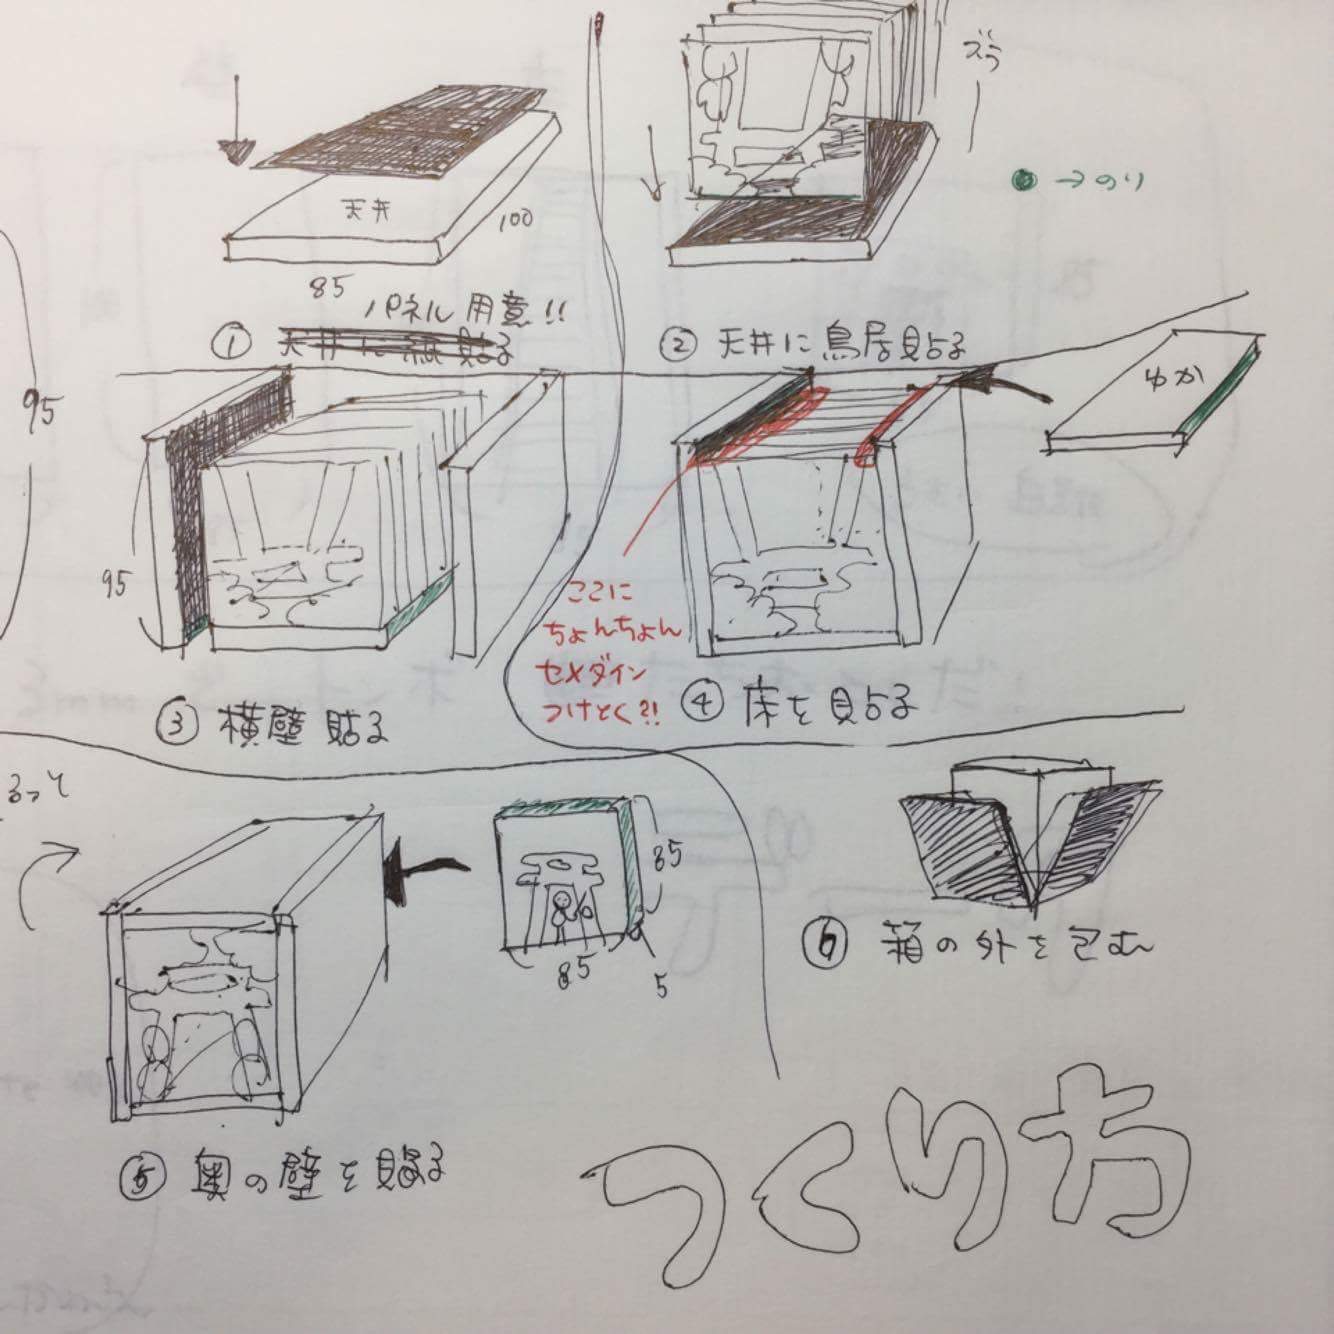 天井
100
85
パネル用意!!
① 天井に紙貼る
ズラ
→のり
② 天井に鳥居貼る
95
95
③ 横壁貼る
ゆか
ここに
ちょんちょん
セメダイン
つけとく?!
④ 床を貼る
るって
85
85
5
⑤ 奥の壁を貼る
⑥ 箱の外を包む
つくり方